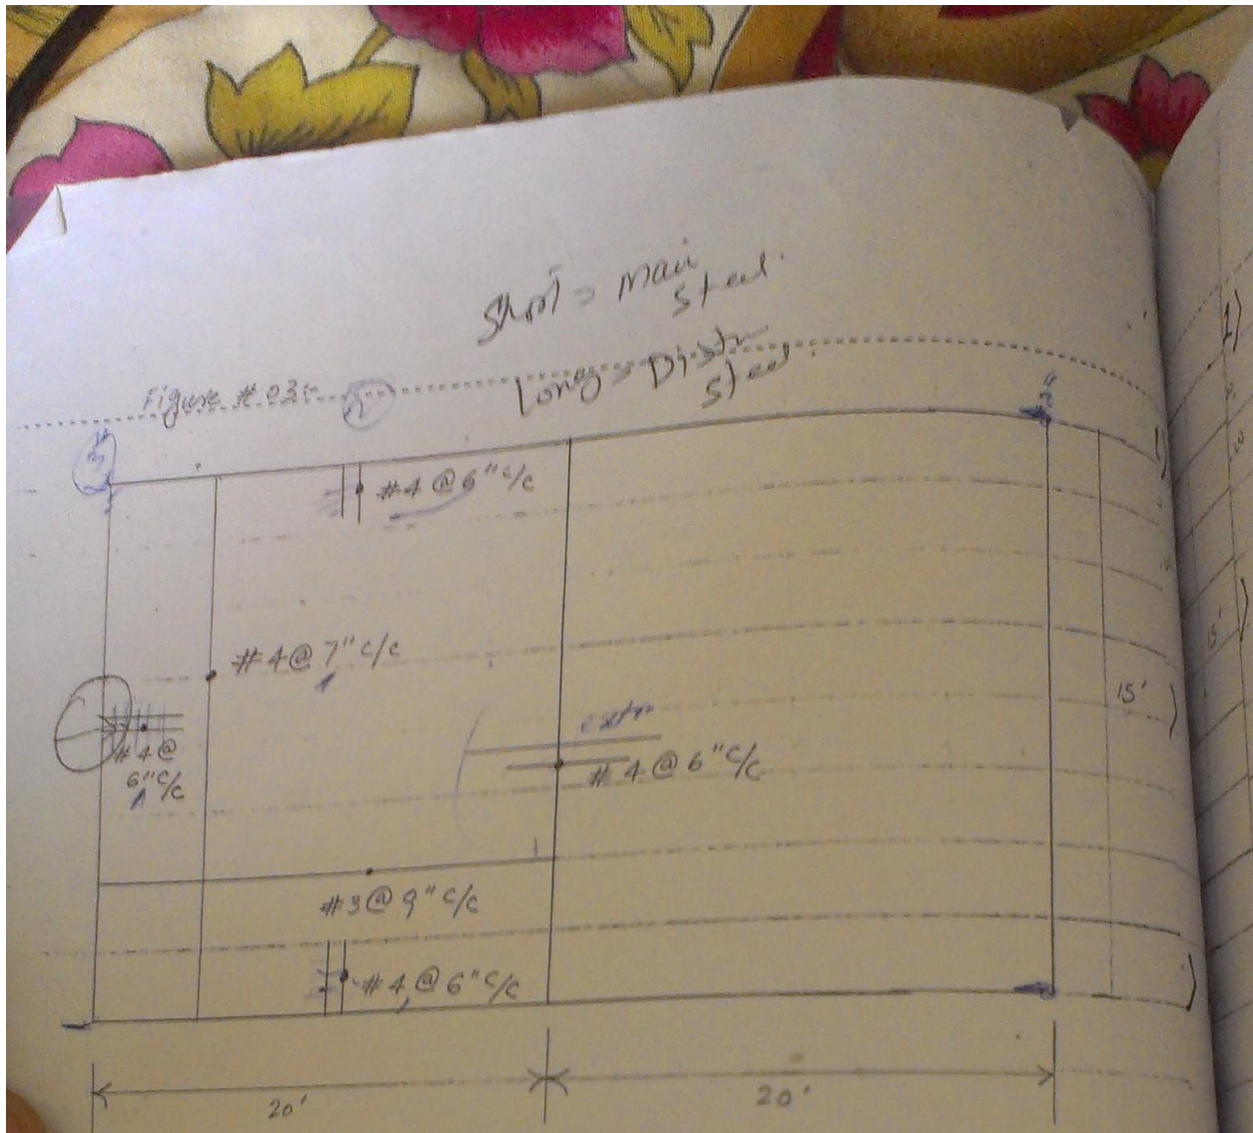 Short = Main
Steel.
Long = Distr
Steel.
Figure # 03:-
#4 @ 6" c/c
#4 @ 7" c/c
15'
extra
#4 @
6" c/c
#4 @ 6" c/c
#3 @ 9" c/c
#4 @ 6" c/c
20'
20'
15'